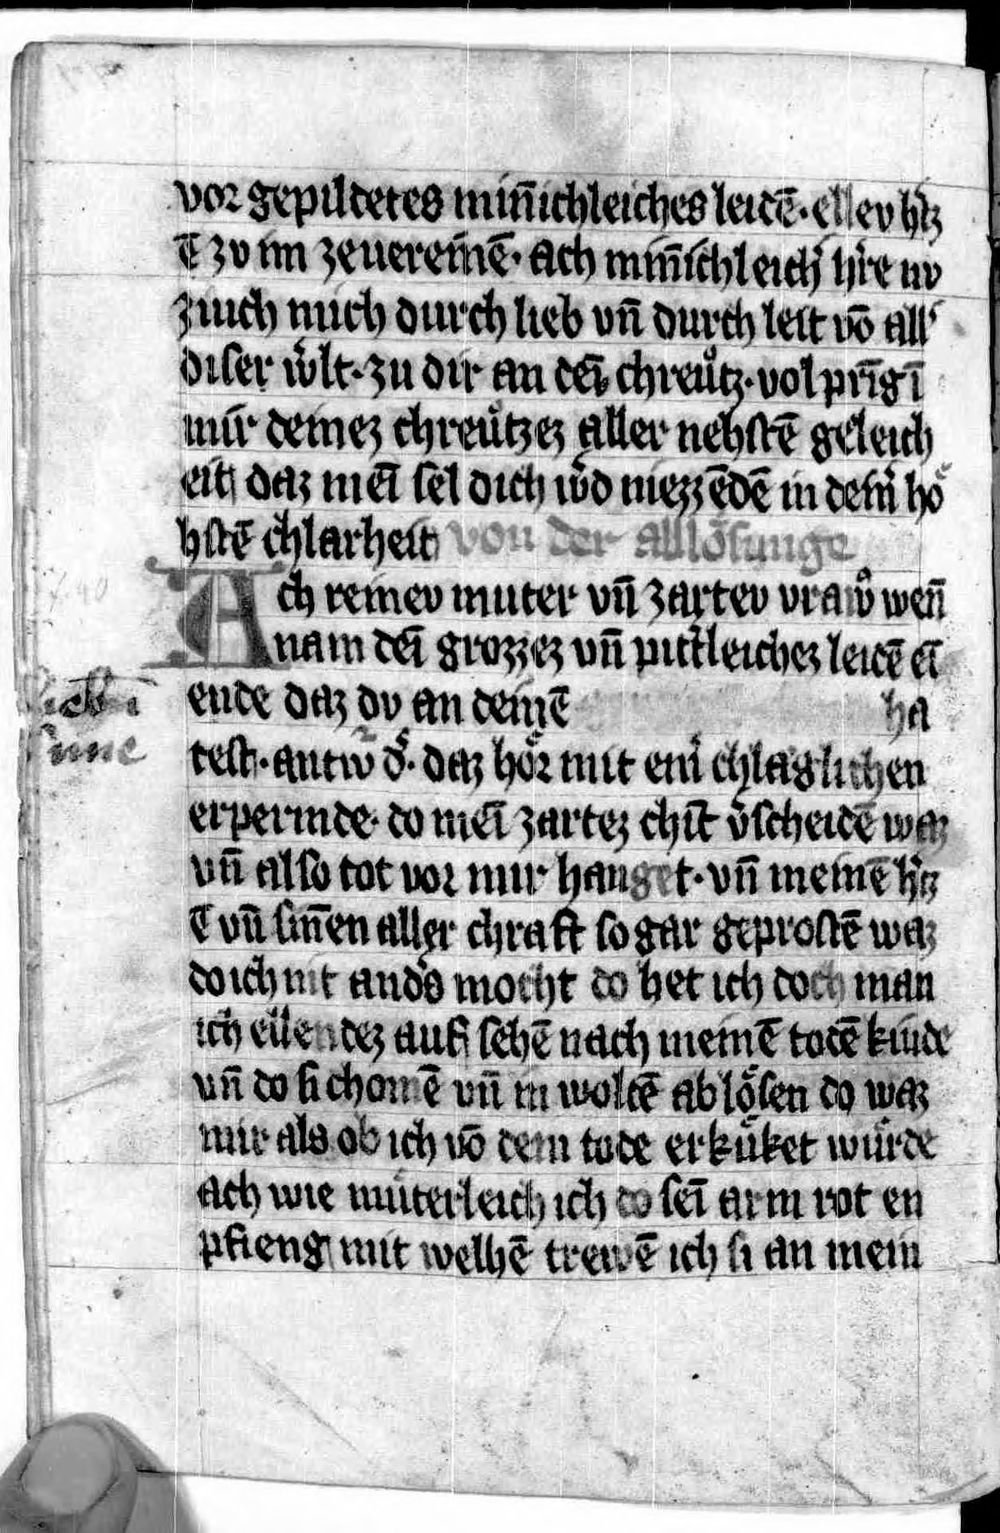 vor gepildetes miñichleiches leidē. ellev hʼtz
ē zv im zeuereinē. Ach miñichleichʼ hʼre nv
ziuch mich durch lieb vñ durch leit vō allʼ
diser wʼlt. zu dir an deī chreůtz. volprīgī
mir deinez chreůtzez aller nehstē geleich
eit daz meī sel dich wʼd niezzēdē in deinʼ hoͤ
hstē chlarheit von der abloͤsunge
Ach reinev muter vñ zartev vrawͦ weñ
nam deī grozzez vñ pittʼleichez leidē eī
ende daz dv an deinē ha
test. antwʼ dʼ. daz hoͤr mit einʼ chlaͤglichen
erpermde. do meī zartez chīt vʼscheidē waz
vñ also tot vor mir hanget. vñ meinē hʼtz
ē vñ siñen aller chraft so gar geprostē waz
do ich nit andʼs mocht do het ich doch man
ich ellendez auf sehē nach meinē todē kinde
vñ do si chomē vñ in woltē abloͤsen do waz
mir als ob ich vō dem tode erkuͤket wuͤrde
ach wie muͤterleich ich do seī arm rot en
pfieng mit welhē trewē ich si an mein